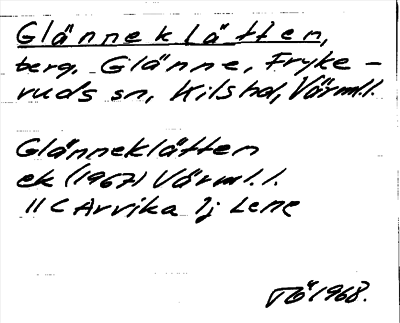 Glänneklätten,
berg. Glänne, Fryke-
ruds sn, Kils hd, Värml.l.
Glänneklätten
ek (1967) Värml.l.
11 C Arvika 1j Lene
1968.